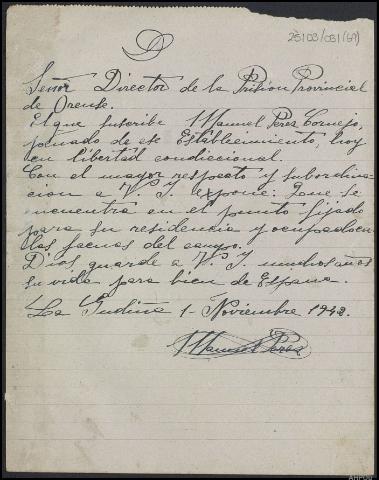 25103/031(69)
Señor Director de la Prision Provincial
de Orense.
El que suscribe Manuel Perez Cornejo,
penado de ese Establecimiento, hoy
en libertad condiccional.
Con el mayor respecto y subordina-
cion a V. I. expone: Que se
encuentra en el punto fijado
para su residencia y ocupado en
las faenas del campo.
Dios guarde a V. I. muchos años
su vida para bien de España.
La Gudiña 1 - Noviembre 1942.
Manuel Perez